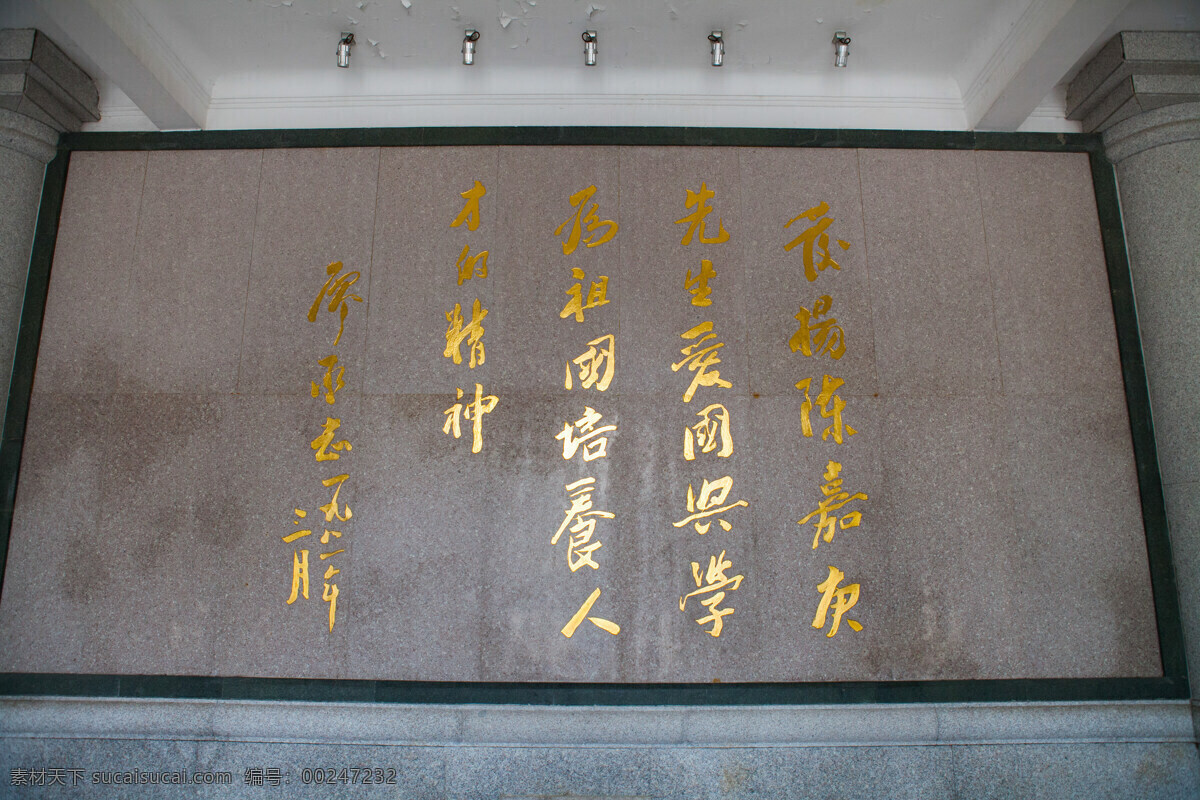 发揚陈嘉庚
先生爱國興學
為祖國培養人
才的精神
廖承志一九八一年
三月
素材天下 sucaisucai.com 编号：00247232